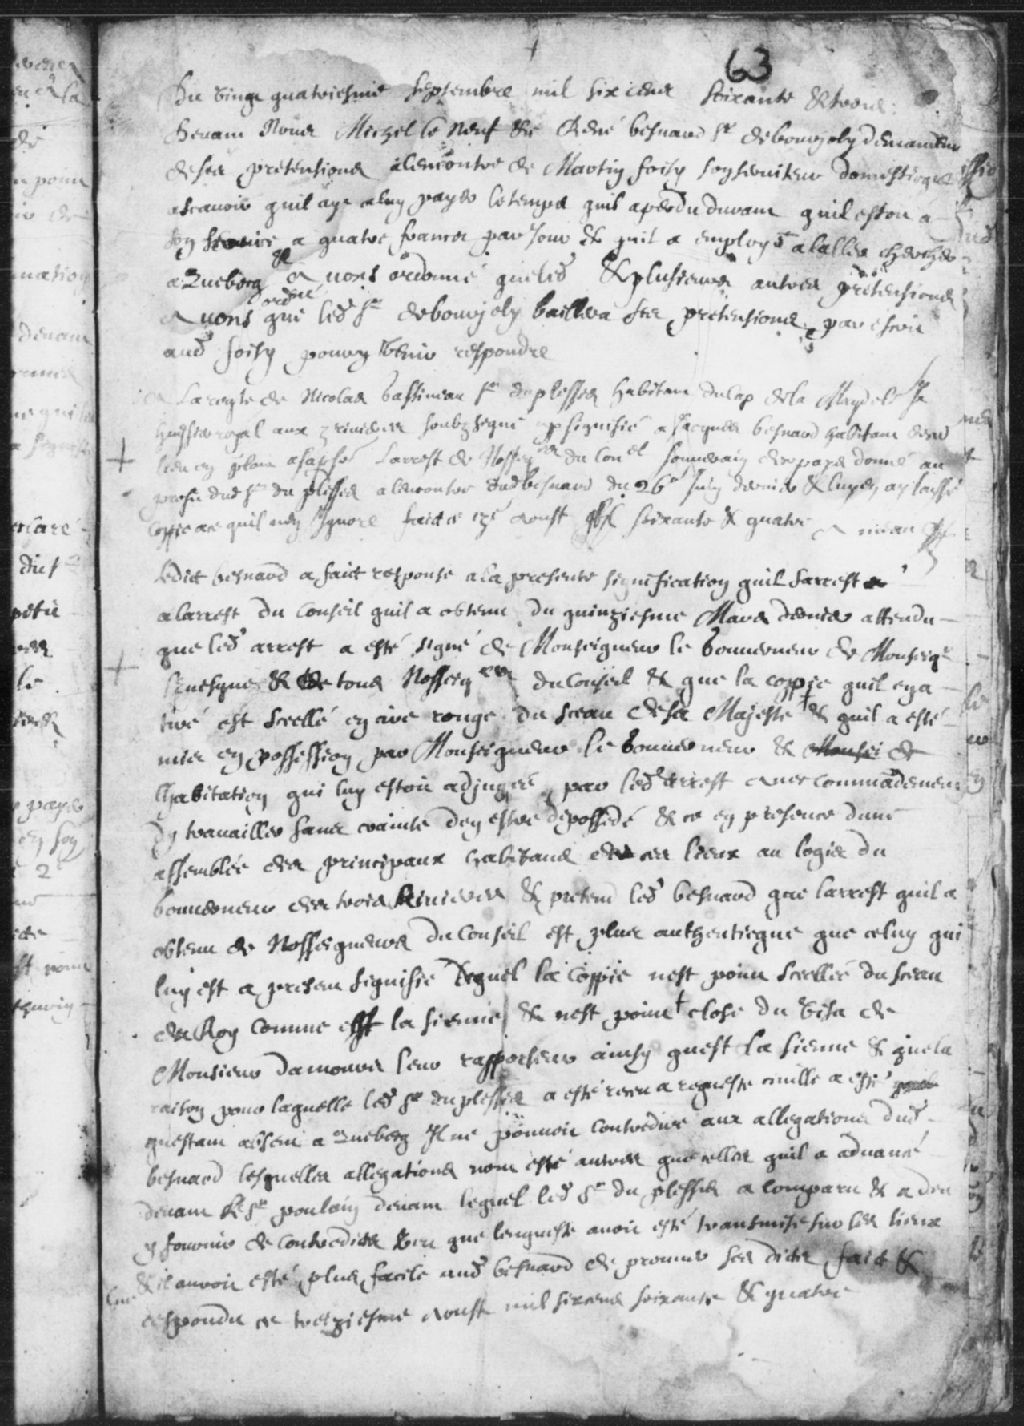 63
Du vingt quatriesme septembre mil six cens soixante & trois
Devant Nous Michel le Neuf & René besnard Sr debourjoly demandeur
de ses pretentions alencontre de Martin foisy son serviteur domestique
ascavoir quil aye aluy payer le temps quil a perdu durant quil estoit a
son service a quatre francs par jour & quil a employé a aller chercher
a Quebecq & plusieurs autres pretentions
Avons ordonné que ledt Sr debourjoly baillera ses pretentions par escrit
audt foisy pour y venir respondre
A La reqte de Nicolas Gastineau Sr duplessis habitant du cap de la Magdelne Je
huissier royal aux 3 rivieres soubzsigné ay signifié a Jacques besnard habitant dud
lieu en plain a sa psne Larrest de Nosseigrs du Conel souverain de ce pays donné au
profit dud Sr du plessis alencontre dud besnard du 26e Juin dernier & luy en ay laissé
coppie a ce quil nen Ignore faict ce 13e aoust soixante & quatre
Ledit besnard a faict response a la presente signification quil sarreste
a larrest du Conseil quil a obtenu du quinziesme Mars dernier attendu
que ledt arrest a esté signé de Monseigneur le Gouverneur de Monseigr
Levesque & de tous Nosseigrs du Conseil & que la coppie quil en a
tiré est scellé en cire rouge du sceau de sa Majesté & quil a esté
mis en possession par Monseigneur le Gouverneur & de
lhabitation qui luy estoit adjugée par ledt arrest avec commandement
dy travailler sans crainte den estre depossedé & ce en presence dune
assemblée des principaux habitans de ces lieux au logis du
Gouverneur des trois Rivieres & pretend ledt besnard que larrest quil a
obtenu de Nosseigneurs du Conseil est plus authentique que celuy qui
luy est a present signifié duquel la coppie nest point scellée du sceau
du Roy comme est la sienne & nest point close du visa de
Monsieur Damours leur rapporteur ainsy quest la sienne & que la
raison pour laquelle ledt Sr duplessis a esté receu a requeste civille a esté
questant absent a Quebecq Il ne pouvoit contredire aux allegations dudt
besnard lesquelles allegations nont esté autres que celles quil a advancé
devant le Sr poulain devant lequel ledt Sr du plessis a comparu & a deu
y fournir de contredits veu que lenqueste avoit esté transmise sur les lieux
& il auroit esté plus facile audt besnard de prouver ses dicts faict &
respondu ce treiziesme aoust mil six cens soixante & quatre